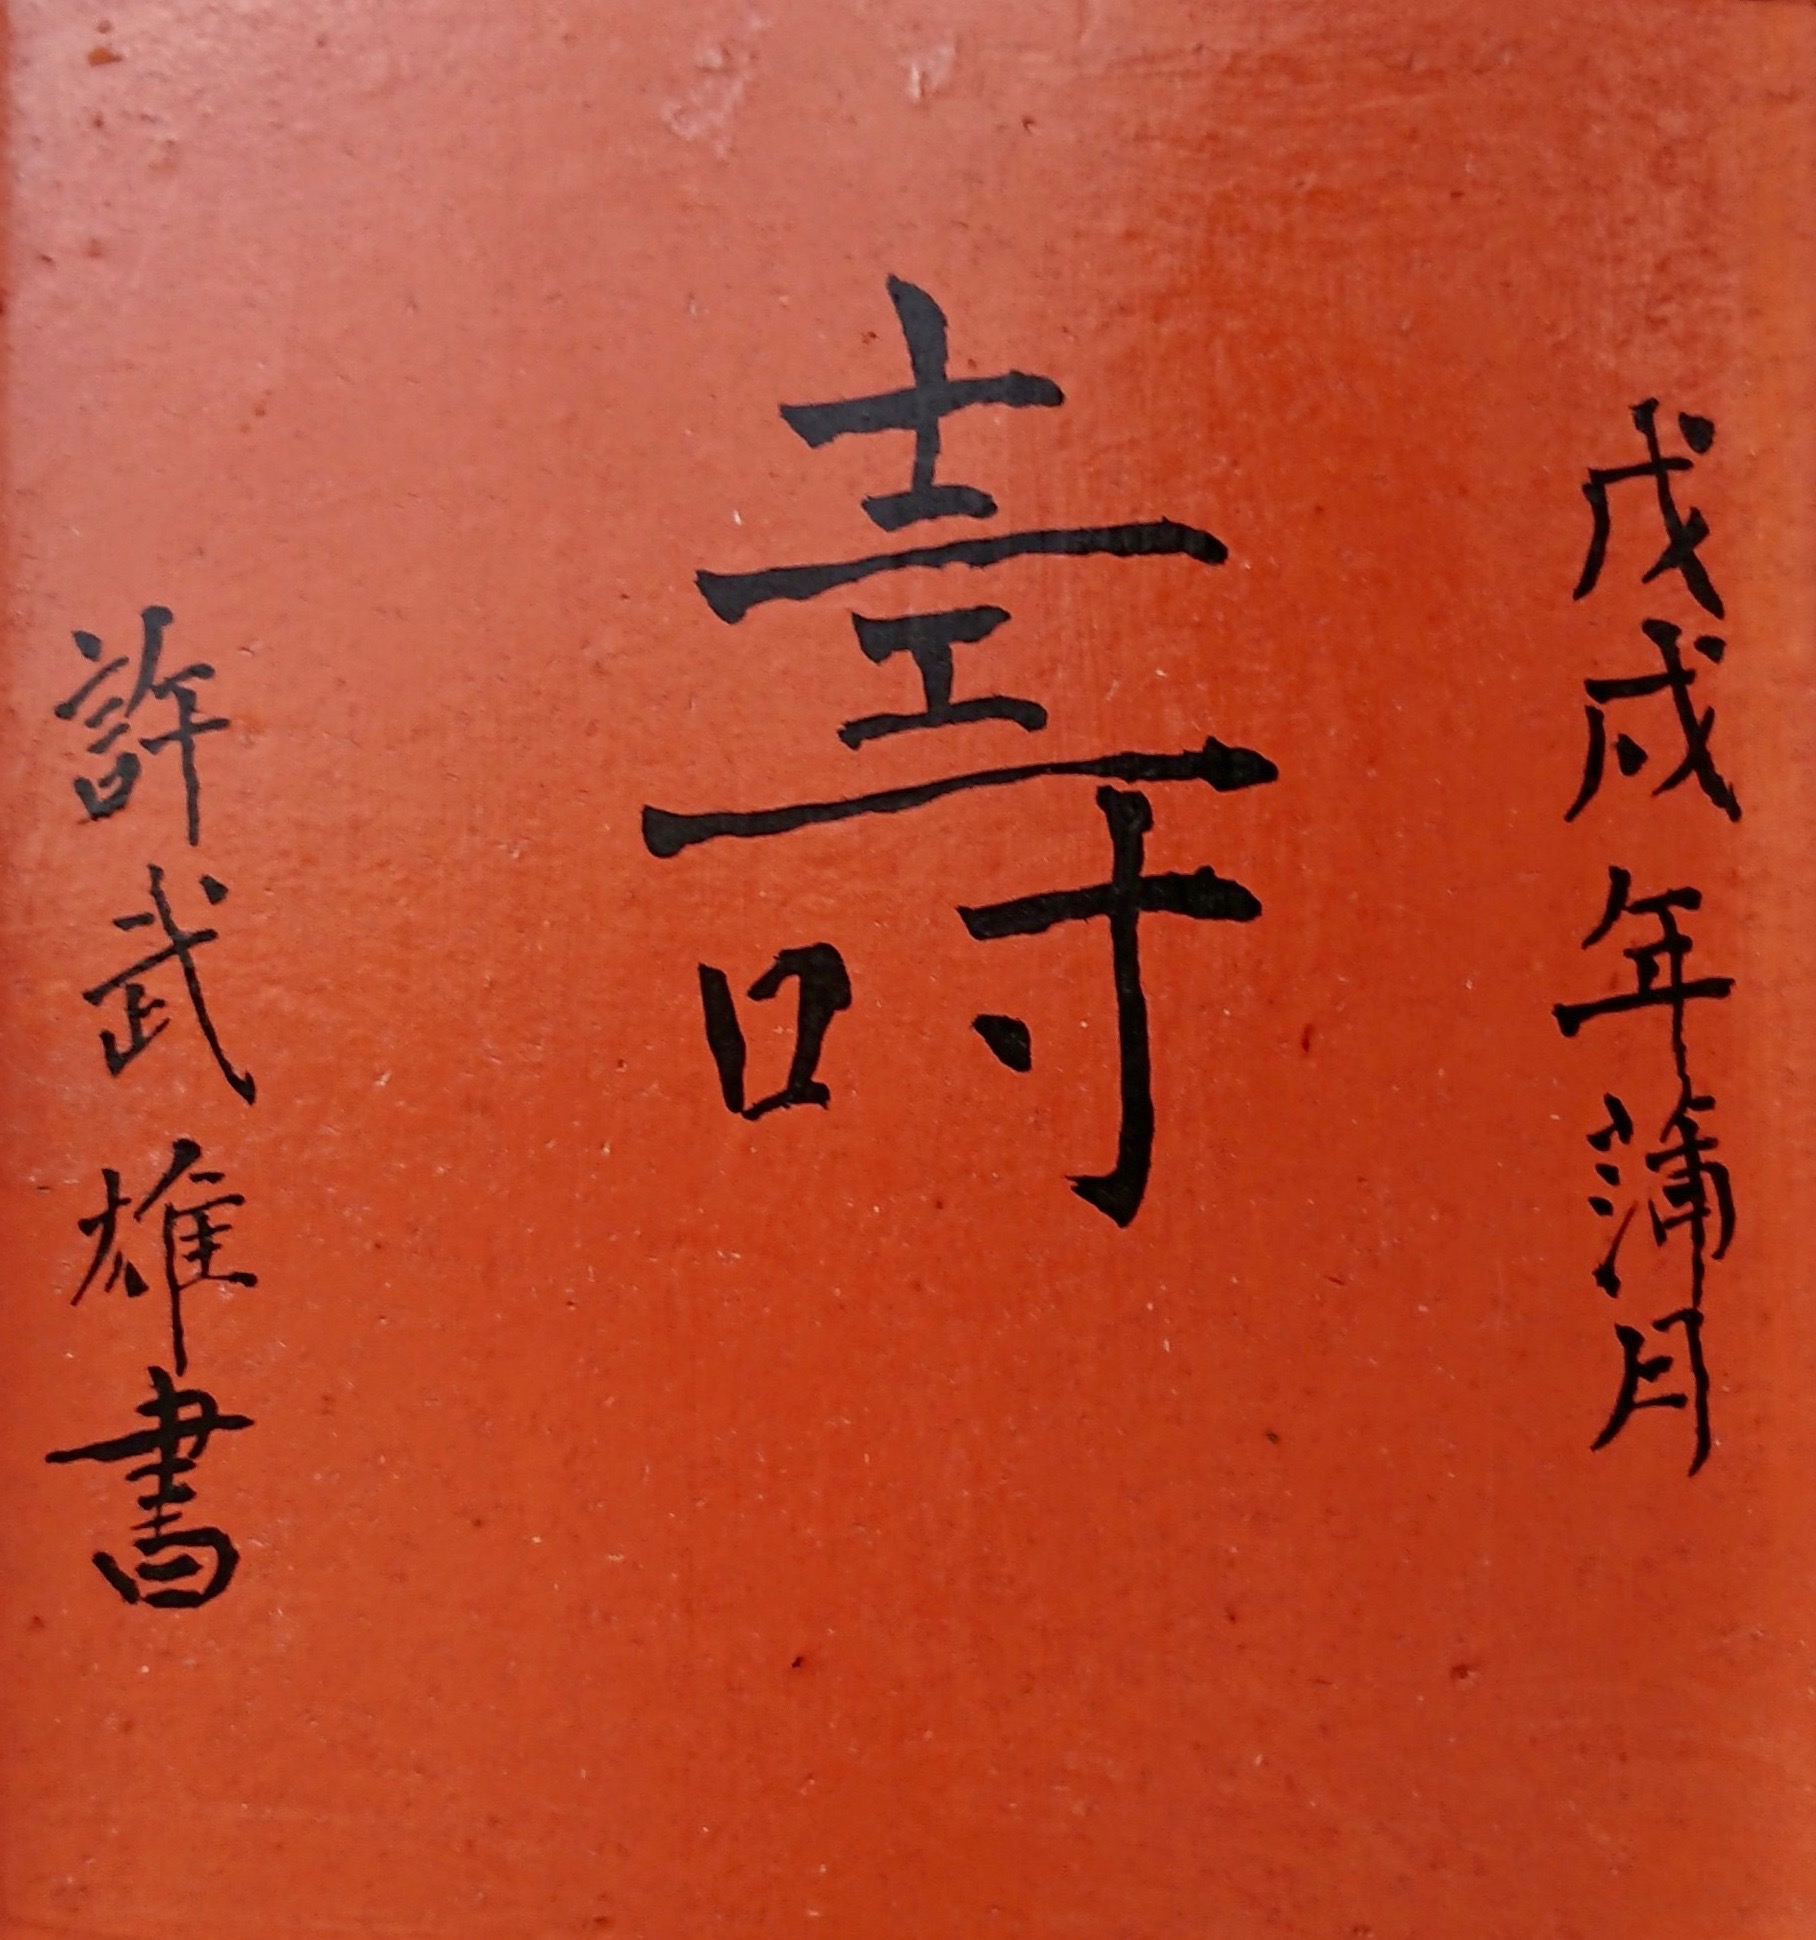 戊戌年蒲月
壽
許武雄書